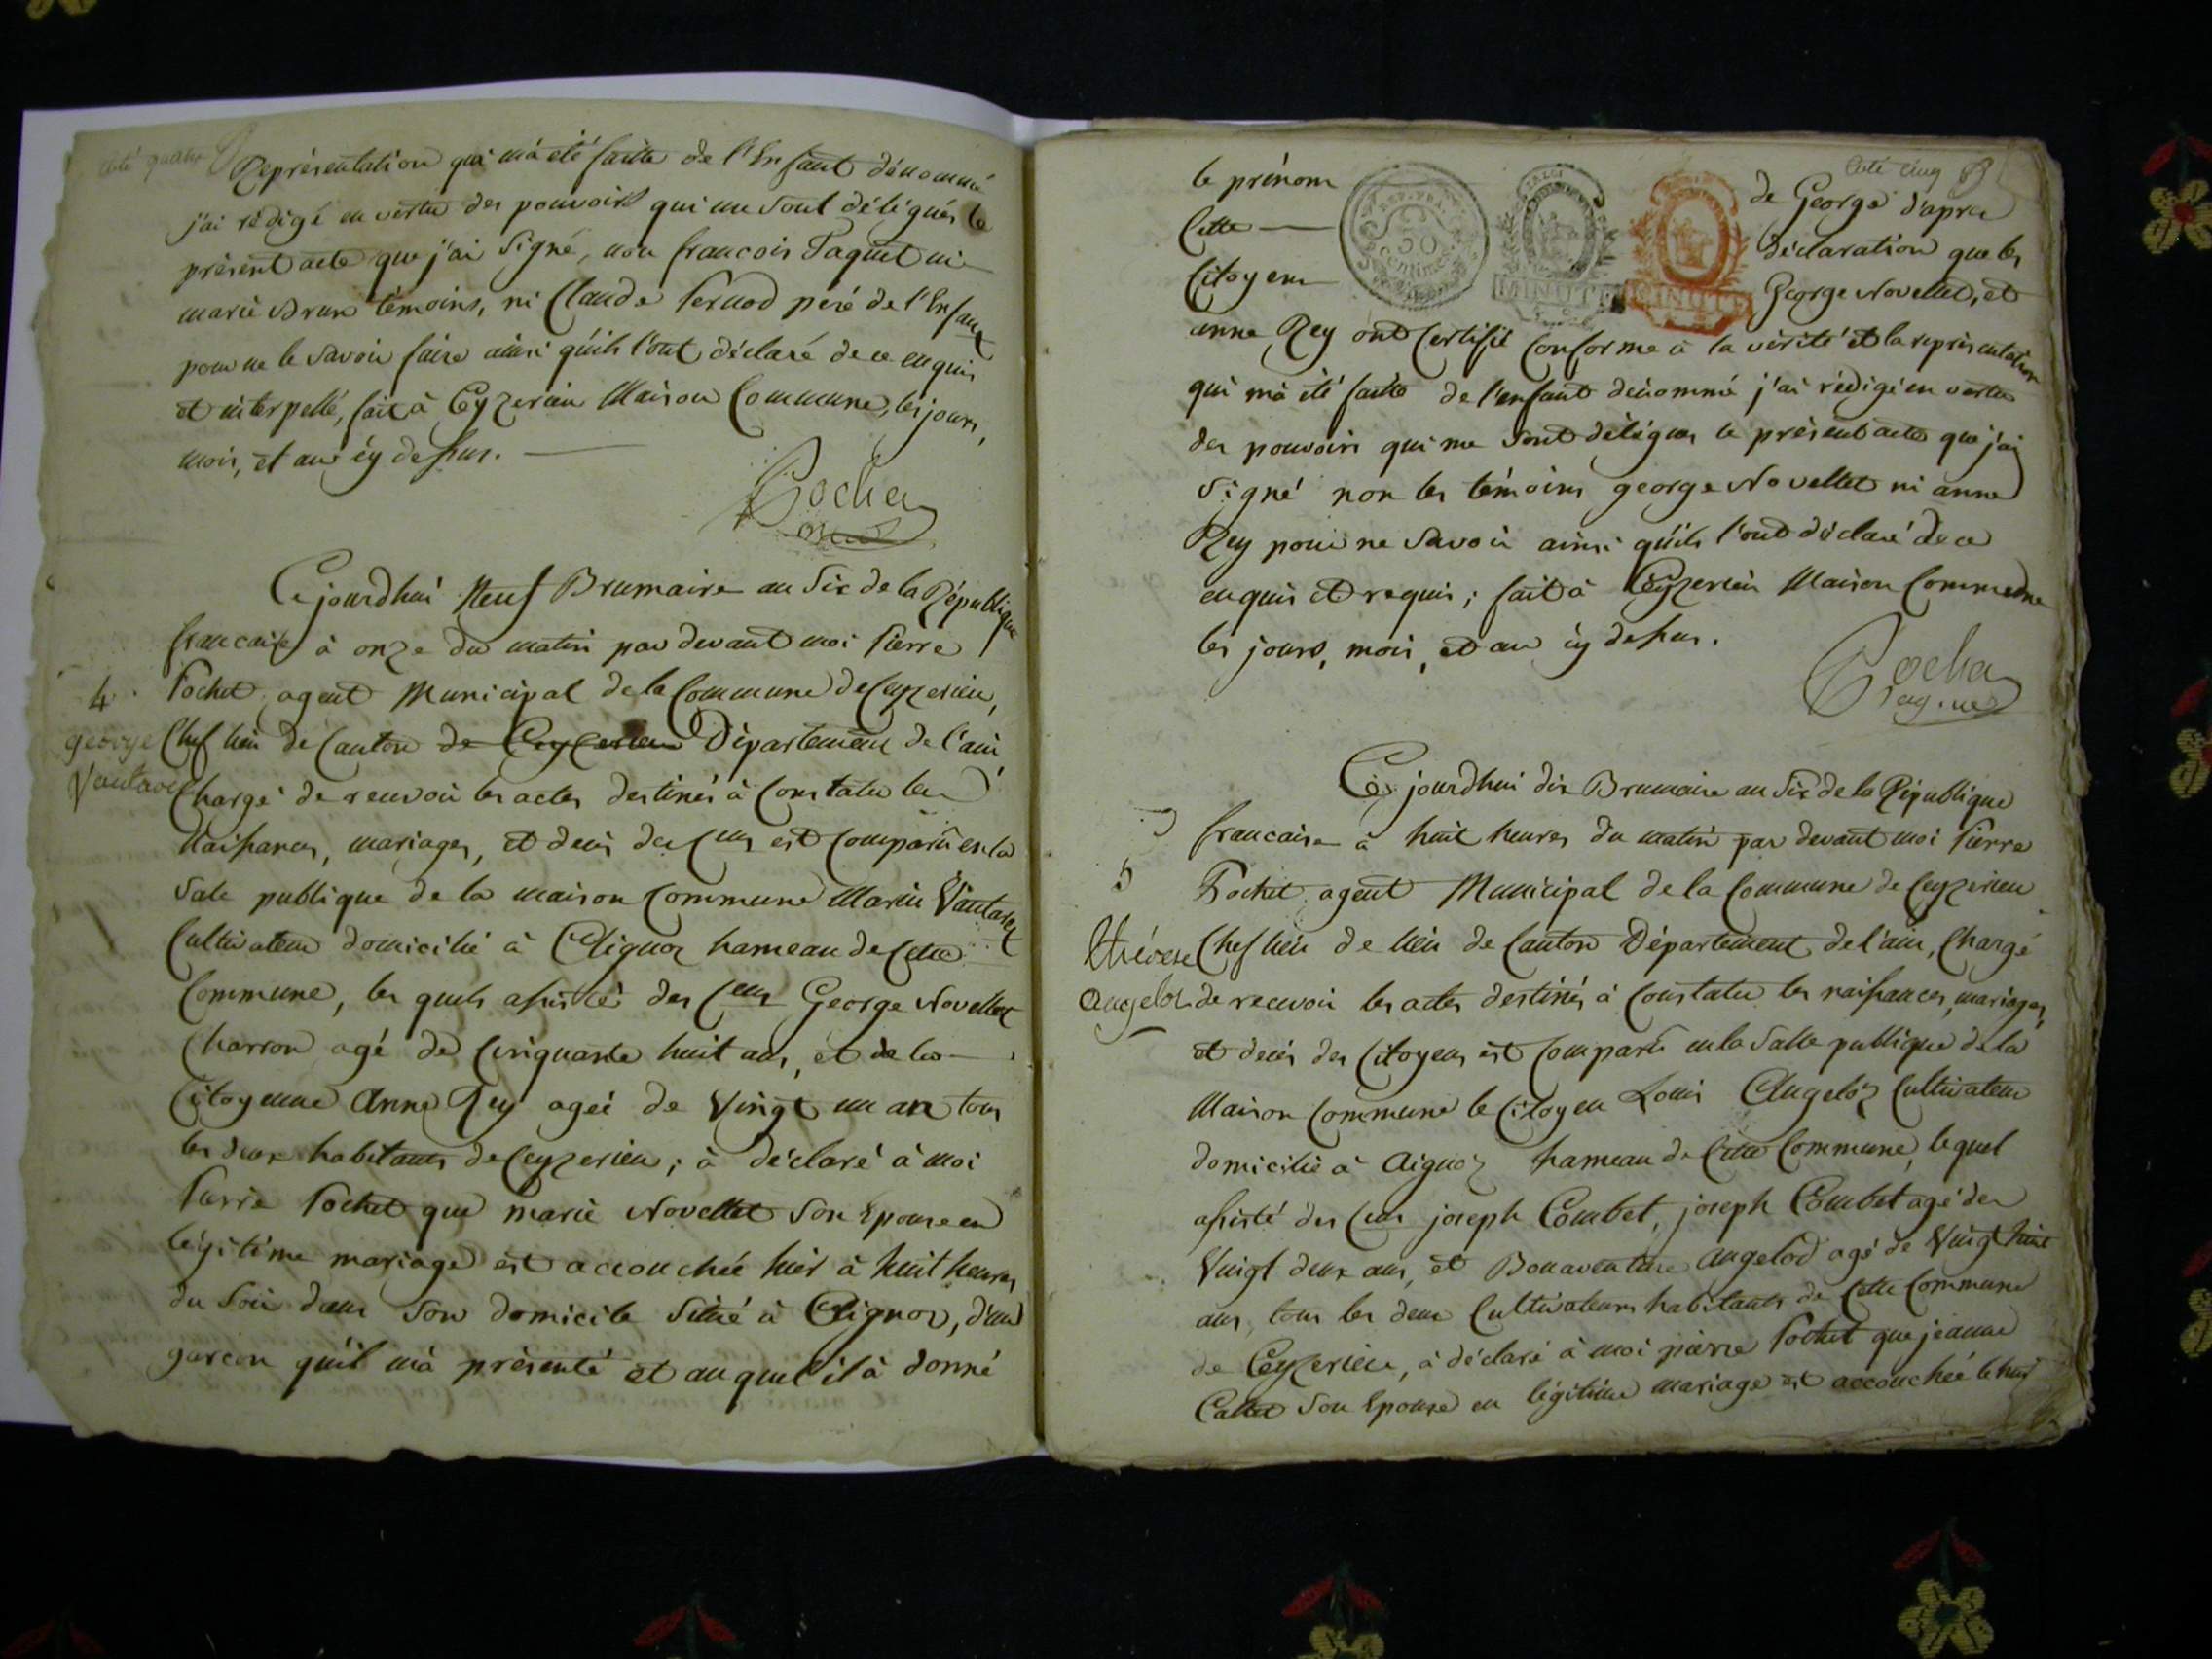 Coté quatre
Représentation qui m'a été faitte de l'Enfant dénommé
j'ai rédigé en vertu des pouvoirs qui me sont délégués le
présent acte que j'ai signé, non francois Paquet ni
marie Brun témoins, ni Claude Pernod péré de l'Enfant
pour ne le savoir faire ainsi qu'ils l'ont déclaré de ce enquis
et interpellé, fait à Ceyzerieu Maison Commune, les jours,
mois, et an cy dessus.
Pochet
Cejourdhui Neuf Brumaire an Six de la République
francaise à onze du matin par devant moi Pierre
4
Pochet, agent Municipal de la Commune de Ceyzerieu,
george
Chef lieu de Canton de Ceyzerieu Département de l'ain,
Vautaret
Chargé de recevoir les actes destinés à Constater les
Naissances, mariages, et decés des Cens est Comparu en la
Sale publique de la maison Commune Marin Vautaret
Cultivateur domicilié à Aignoz hameau de Cette
Commune, les quels assisté des Cens George Novellet
Charron agé de Cinquante huit ans, et de la
Citoyenne Anne Rey ageé de Vingt un an tous
les deux habitants de Ceyzerieu; à déclaré à moi
Pierre Pochet que marie Novellet Son Epouse en
légitime mariage est accouchée hier à huit heures
du Soir dans Son domicile Situé à Aignoz, d'un
garcon qu'il m'à présenté et auquel il à donné
Coté Cinq
le prénom de George d'apres
Cette déclaration que les
Citoyens George Novellet, et
REP. FRA.
50
centimes
MINUTE
MINUTE
anne Rey ont Certifié Conforme à la vérité et la représentation
qui m'a été faitte de l'enfant dénommé j'ai rédigé en vertu
des pouvoirs qui me sont délégués le présent acte que j'ai
Signé non les témoins george Novellet ni anne
Rey pour ne Savoir ainsi qu'ils l'ont déclaré de ce
enquis et requis; fait à Ceyzerieu Maison Commune
les jours, mois, et an cy dessus.
Pochet
Cejourdhui dix Brumaire an Six de la République
francaise à huit heures du matin par devant moi Pierre
5
Pochet, agent Municipal de la Commune de Ceyzerieu
thérese
Chef lieu de lieu de Canton Département de l'ain, Chargé
Angeloz
de recevoir les actes destinés à Constater les naissances, mariages,
et decés des Citoyens est Comparu en la Salle publique de la
Maison Commune le Citoyen Louis Angelóz Cultivateur
domicilié à Aignoz hameau de Cette Commune, lequel
assisté des Cens joseph Combet, joseph Combet agé de
Vingt deux ans, et Bonaventure Angelod agé de Vingt huit
ans, tous les deux Cultivateurs habitants de Cette Commune
de Ceyzerieu, à déclaré à moi pierre Pochet que jeanne
Callet Son Epouse en légitime mariage est accouchée le huit